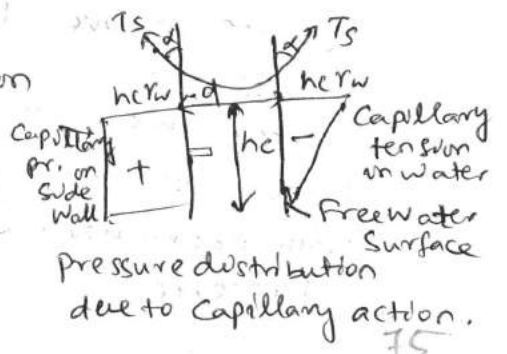 Ts α α Ts
on
hcrw d hcrw
Capillary pr. on side wall
+ - hc -
Capillary tension in water
Free water Surface
pressure distribution
due to Capillary action.
75